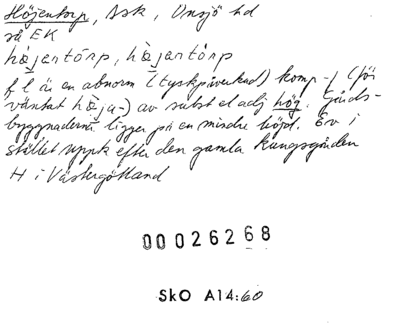 Höjentorp, Ask, Onsjö hd
så EK
hö̀jentȯrp, hö̀jentȧrp
f l är en abnorm (tyskpåverkad) komp-f (för
väntat höja-) av subst el adj hög. Gårds-
byggnaderna ligger på en mindre höjd. Ev i
stället uppk efter den gamla kungsgården
H i Västergötland
00026268
SkO A14:60